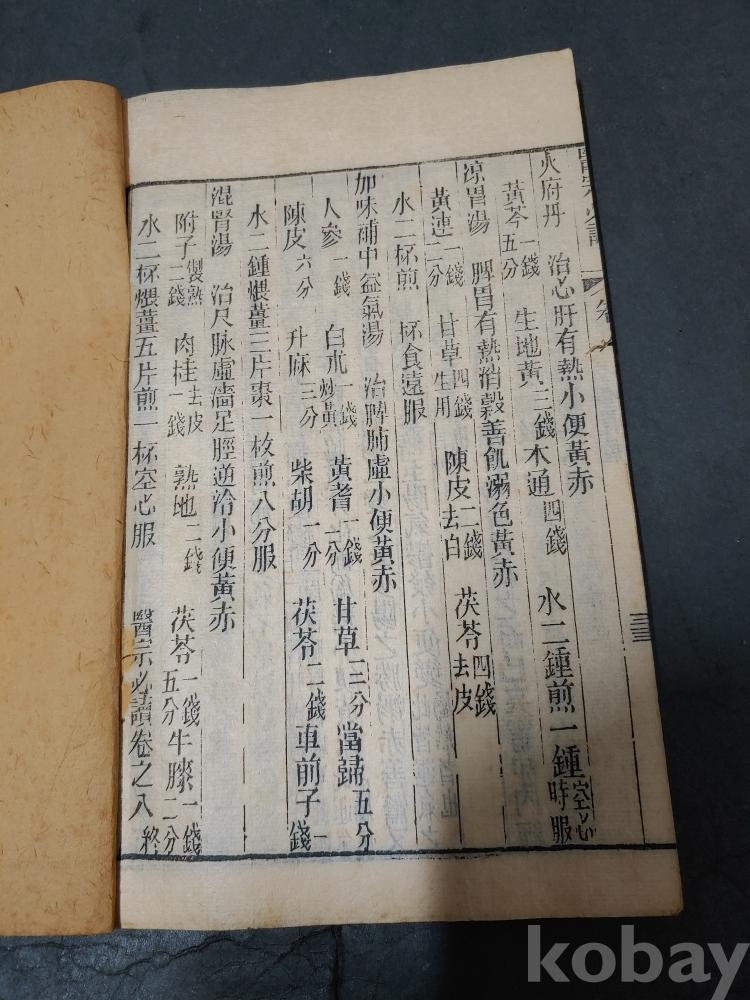 醫宗必讀 卷八
火府丹 治心肝有熱小便黃赤
黃芩一錢五分 生地黃三錢 木通四錢 水二鍾煎一鍾空心時服
涼胃湯 脾胃有熱消穀善飢溺色黃赤
黃連一錢二分 甘草四錢生用 陳皮二錢去白 茯苓四錢去皮
水二杯煎一杯食遠服
加味補中益氣湯 治脾肺虛小便黃赤
人參一錢 白朮一錢炒黃 黃耆一錢二分 甘草三分 當歸五分
陳皮六分 升麻三分 柴胡一分 茯苓二錢 車前子一錢
水二鍾煨薑三片棗一枚煎八分服
溫腎湯 治尺脉虛濇足脛逆冷小便黃赤
附子製熟二錢 肉桂去皮一錢 熟地二錢 茯苓一錢五分 牛膝一錢二分
水二杯煨薑五片煎一杯空心服 醫宗必讀卷之八終
三三
kobay